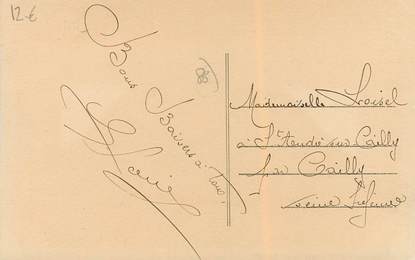 12-€
Bons
Baisers à tous,
Mademoiselle Loisel
à St André sur Cailly
par Cailly
Seine Infre